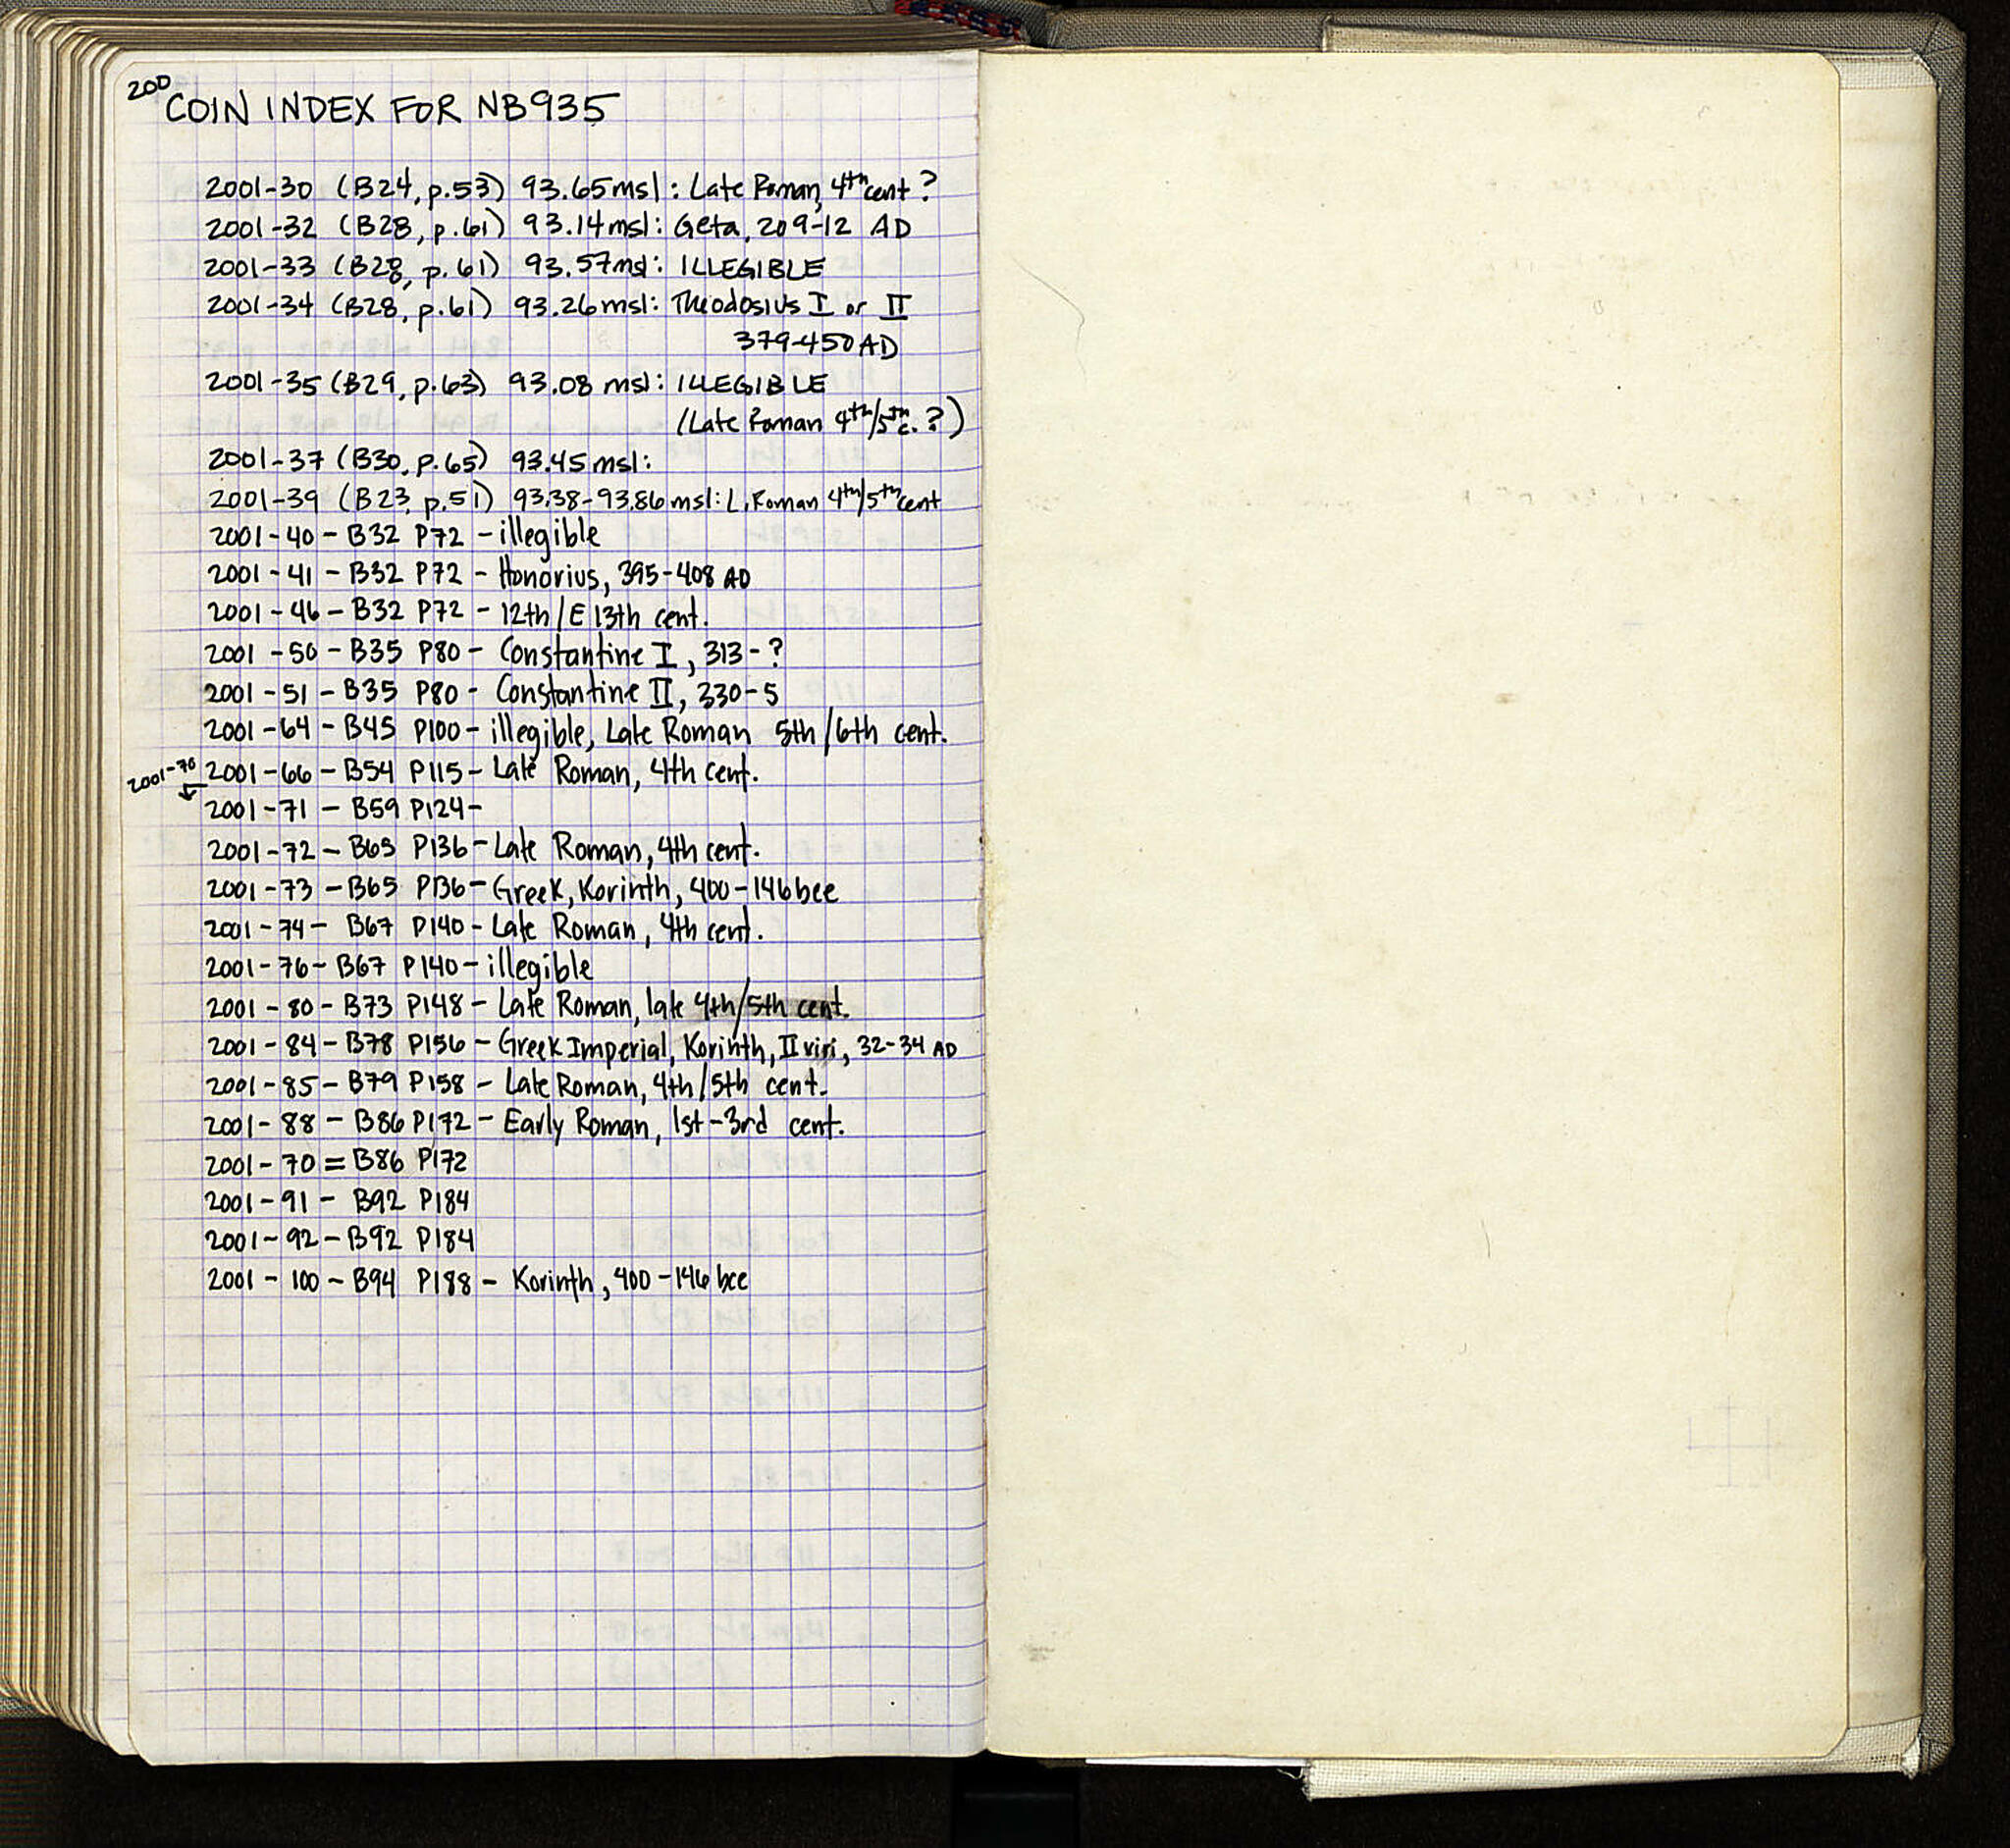 200
COIN INDEX FOR NB935
2001-30 (B24, p.53) 93.65msl: Late Roman, 4th cent?
2001-32 (B28, p.61) 93.14msl: Geta, 209-12 AD
2001-33 (B28, p.61) 93.57msl: ILLEGIBLE
2001-34 (B28, p.61) 93.26msl: Theodosius I or II
379-450 AD
2001-35 (B29, p.63) 93.08 msl: ILLEGIBLE
(Late Roman 4th/5th c.?)
2001-37 (B30, p.65) 93.45msl:
2001-39 (B23, p.51) 93.38-93.86msl: L. Roman 4th/5th cent
2001-40-B32 P72 - illegible
2001-41-B32 P72 - Honorius, 395-408 AD
2001-46-B32 P72 - 12th/E 13th cent.
2001-50-B35 P80 - Constantine I, 313-?
2001-51-B35 P80 - Constantine II, 330-5
2001-64-B45 P100 - illegible, Late Roman 5th/6th cent.
2001-66-B54 P115 - Late Roman, 4th cent.
2001-70 ↓
2001-71 - B59 P124 -
2001-72 - B65 P136 - Late Roman, 4th cent.
2001-73 - B65 P136 - Greek, Korinth, 400-146 bce
2001-74 - B67 P140 - Late Roman, 4th cent.
2001-76 - B67 P140 - illegible
2001-80 - B73 P148 - Late Roman, late 4th/5th cent.
2001-84 - B78 P156 - Greek Imperial, Korinth, II viri, 32-34 AD
2001-85 - B79 P158 - Late Roman, 4th/5th cent.
2001-88 - B86 P172 - Early Roman, 1st-3rd cent.
2001-70 = B86 P172
2001-91 - B92 P184
2001-92 - B92 P184
2001-100 - B94 P188 - Korinth, 400-146 bce